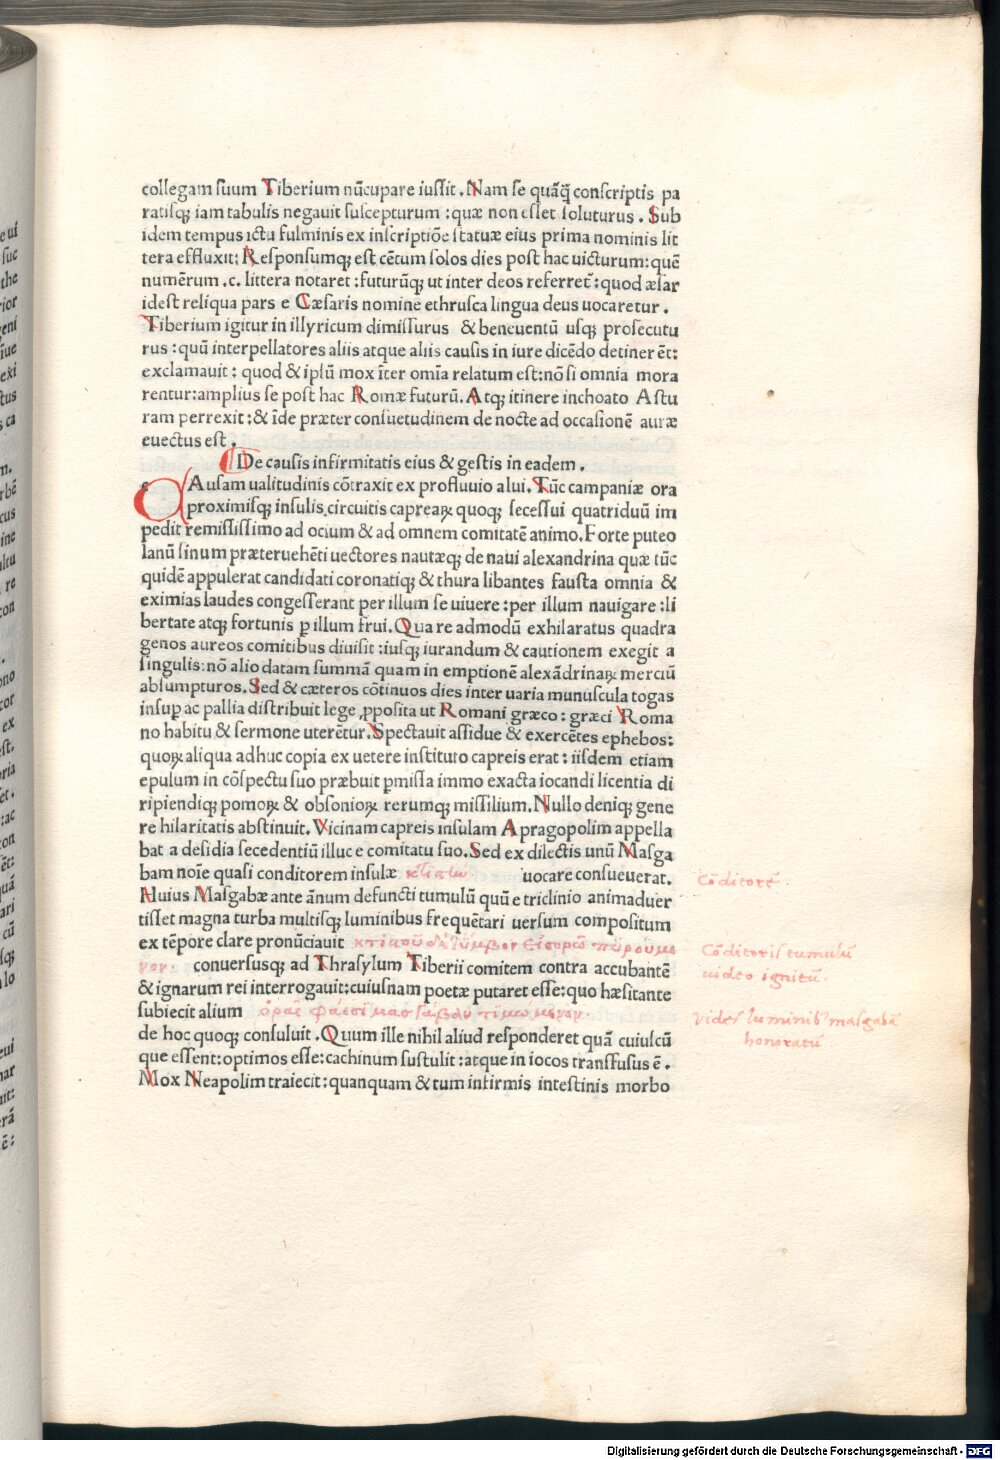 collegam suum Tiberium nūcupare iussit. Nam se quāq̄ conscriptis pa
ratisq; iam tabulis negauit suscepturum: quæ non esset soluturus. Sub
idem tempus ictu fulminis ex inscriptiōe statuæ eius prima nominis lit
tera effluxit: Responsumq; est cētum solos dies post hac uicturum: quē
numērum .c. littera notaret: futurūq; ut inter deos referret̄: quod æsar
idest reliqua pars e Cæsaris nomine ethrusca lingua deus uocaretur.
Tiberium igitur in illyricum dimissurus & beneuentū usq; prosecutu
rus: quū interpellatores aliis atque aliis causis in iure dicēdo detinerēt:
exclamauit: quod & ipsū mox īter omīa relatum est: nō si omnia mora
rentur: amplius se post hac Romæ futurū. Atq; itinere inchoato Astu
ram perrexit: & īde præter consuetudinem de nocte ad occasionē auræ
euectus est.
De causis infirmitatis eius & gestis in eadem.
CAusam ualitudinis cōtraxit ex profluuio alui. Tūc campaniæ ora
proximisq; insulis circuitis capreaꝝ quoq; secessui quatriduū im
pedit remississimo ad ocium & ad omnem comitatē animo. Forte puteo
lanū sinum præteruehēti uectores nautæq; de naui alexandrina quæ tūc
quidē appulerat candidati coronatiq; & thura libantes fausta omnia &
eximias laudes congesserant per illum se uiuere: per illum nauigare: li
bertate atq; fortunis ꝑ illum frui. Qua re admodū exhilaratus quadra
genos aureos comitibus diuisit: iusq; iurandum & cautionem exegit a
singulis: nō alio datam summā quam in emptionē alexādrinaꝝ merciū
absumpturos. Sed & cæteros cōtinuos dies inter uaria munuscula togas
insuꝑ ac pallia distribuit lege ꝓposita ut Romani græco: græci Roma
no habitu & sermone uterētur. Spectauit assidue & exercētes ephebos:
quoꝝ aliqua adhuc copia ex uetere instituto capreis erat: iisdem etiam
epulum in cōspectu suo præbuit ꝑmissa immo exacta iocandi licentia di
ripiendiq; pomoꝝ & obsonioꝝ rerumq; missilium. Nullo deniq; gene
re hilaritatis abstinuit. Vicinam capreis insulam Apragopolim appella
bat a desidia secedentiū illuc e comitatu suo. Sed ex dilectis unū Masga
bam noīe quasi conditorem insulæ κτίστω uocare consueuerat.
Huius Masgabæ ante ānum defuncti tumulū quū e triclinio animaduer
tisset magna turba multisq; luminibus frequētari uersum compositum
ex tēpore clare pronūciauit κτίστου δὲ τύμβον εἰσορῶ πυρούμε
νον. conuersusq; ad Thrasylum Tiberii comitem contra accubantē
& ignarum rei interrogauit: cuiusnam poetæ putaret esse: quo hæsitante
subiecit alium ὁρᾷς φάεσι μασγάβαν τιμώμενον.
de hoc quoq; consuluit. Quum ille nihil aliud responderet quā cuiuscū
que essent: optimos esse: cachinum sustulit: atque in iocos transfusus ē.
Mox Neapolim traiecit: quanquam & tum infirmis intestinis morbo
Cōditorē.
Cōditoris tumulū
uideo ignitū.
vides luminib' masgabā
honoratū
Digitalisierung gefördert durch die Deutsche Forschungsgemeinschaft - DFG